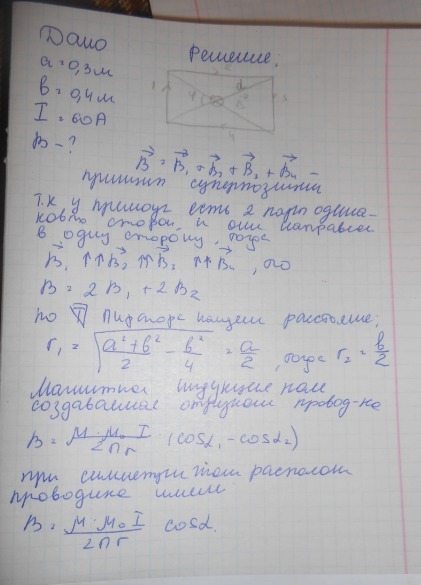 Дано
Решение:
a = 0,3 м
b = 0,4 м
I = 60 А
B - ?
B⃗ = B⃗₁ + B⃗₂ + B⃗₃ + B⃗₄ -
принцип суперпозиции
Т.к у прямоуг есть 2 пары одина-
ковых сторон, и они направлен
в одну сторону, тогда
B⃗₁ ↑↑ B⃗₂ ↑↑ B⃗₃ ↑↑ B⃗₄, то
B = 2 B₁ + 2 B₂
по Т Пифагора найдем расстояние;
r₁ = √(a² + b² / 2 - b² / 4) = a/2, тогда r₂ = b/2
Магнитное поле
создаваемое отрезком провод-ка
B = М · М₀ I / 2πr (cosα₁ - cosα₂)
при симметричном располож
проводника имеем
B = М · М₀ I / 2πr cosα.